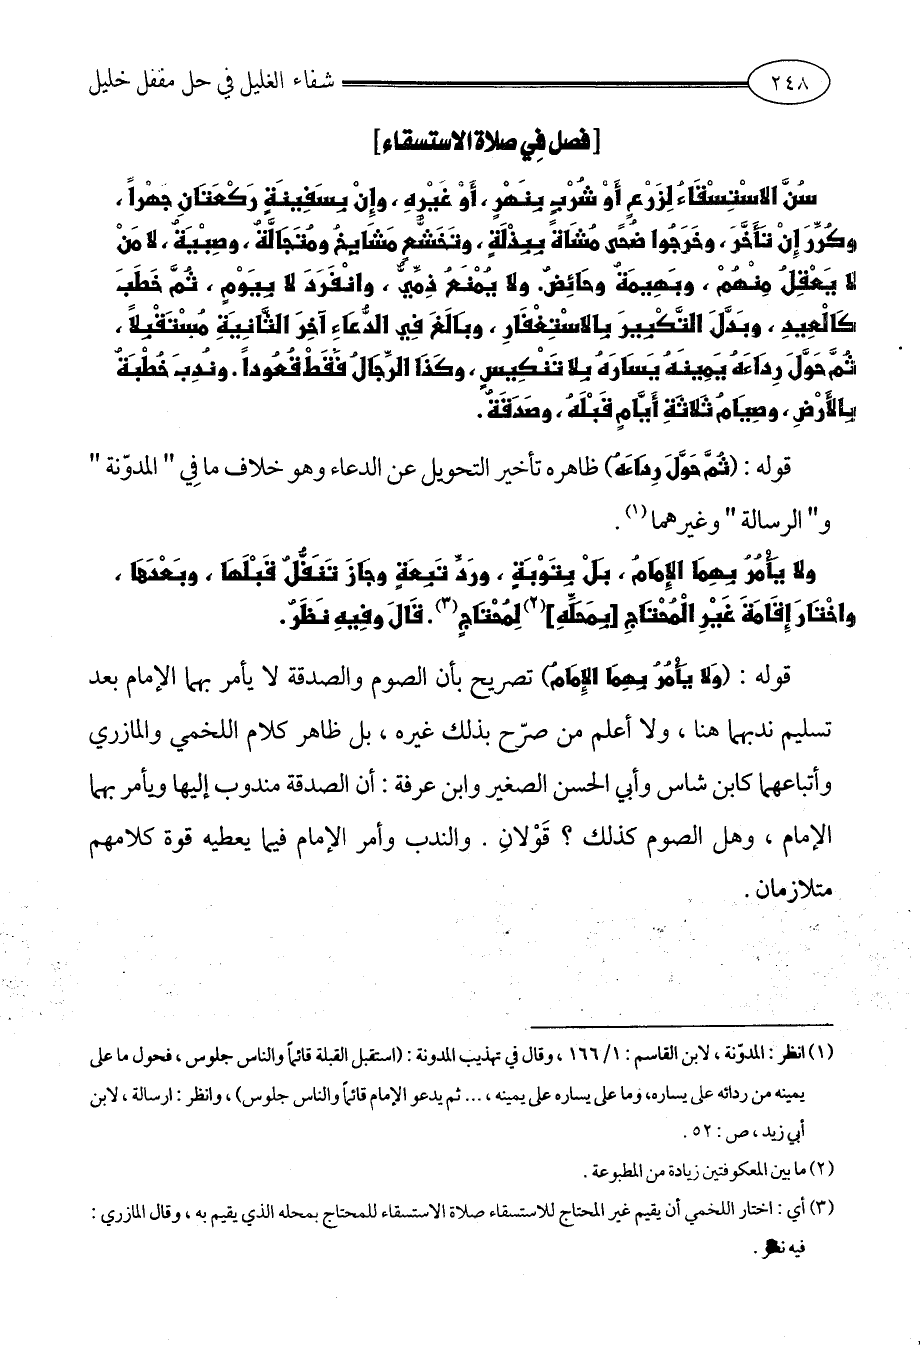 ٢٤٨ شفاء الغليل في حل مقفل خليل
[فصل في صلاة الاستسقاء]
سُنَّ الاسْتِسْقَاءُ لِزَرْعٍ أَوْ شُرْبٍ بِنَهَرٍ ، أَوْ غَيْرِهِ ، وإِنْ بِسَفِينَةٍ رَكْعَتَانِ جَهْراً ،
وكُرِّرَ إِنْ تَأَخَّرَ ، وخَرَجُوا ضُحًى مُشَاةً بِبِذْلَةٍ ، وتَخَشُّعٍ مَشَايِخُ ومُتَجَالَّةٌ ، وصِبْيَةٌ ، لا مَنْ
لا يَعْقِلُ مِنْهُمْ ، وبَهِيمَةٌ وحَائِضٌ. ولا يُمْنَعُ ذِمِّيٌّ ، وانْفَرَدَ لا بِيَوْمٍ ، ثُمَّ خَطَبَ
كَالْعِيدِ ، وبَدَّلَ التَّكْبِيرَ بِالاسْتِغْفَارِ ، وبَالَغَ فِي الدُّعَاءِ آخِرَ الثَّانِيَةِ مُسْتَقْبِلاً ،
ثُمَّ حَوَّلَ رِدَاءَهُ يَمِينَهُ يَسَارَهُ بِلا تَنْكِيسٍ ، وكَذَا الرِّجَالُ فَقَطْ قُعُوداً . ونُدِبَ خُطْبَةٌ
بِالأَرْضِ ، وصِيَامُ ثَلاثَةِ أَيَّامٍ قَبْلَهُ ، وصَدَقَةٌ .
قوله : (ثُمَّ حَوَّلَ رِدَاءَهُ) ظاهره تأخير التحويل عن الدعاء وهو خلاف ما في " المدوّنة "
و" الرسالة " وغيرهما (١) .
ولا يَأْمُرُ بِهِمَا الإِمَامُ ، بَلْ بِتَوْبَةٍ ، ورَدِّ تَبِعَةٍ وجَازَ تَنَفُّلٌ قَبْلَهَا ، وبَعْدَهَا ،
واخْتَارَ إِقَامَةَ غَيْرِ الْمُحْتَاجِ [بِمَحَلِّهِ](٢) لِمُحْتَاجٍ(٣). قَالَ وفِيهِ نَظَرٌ .
قوله : (وَلا يَأْمُرُ بِهِمَا الإِمَامُ) تصريح بأن الصوم والصدقة لا يأمر بهما الإمام بعد
تسليم ندبهما هنا ، ولا أعلم من صرّح بذلك غيره ، بل ظاهر كلام اللخمي والمازري
وأتباعهما كابن شاس وأبي الحسن الصغير وابن عرفة : أن الصدقة مندوب إليها ويأمر بها
الإمام ، وهل الصوم كذلك ؟ قَوْلانِ . والندب وأمر الإمام فيما يعطيه قوة كلامهم
متلازمان .
(١) انظر : المدوّنة ، لابن القاسم : ١/ ١٦٦ ، وقال في تهذيب المدونة : (استقبل القبلة قائماً والناس جلوس ، فحول ما على
يمينه من ردائه على يساره، وما على يساره على يمينه ، ... ثم يدعو الإمام قائماً والناس جلوس) ، وانظر : ارسالة ، لابن
أبي زيد ، ص : ٥٢ .
(٢) ما بين المعكوفتين زيادة من المطبوعة .
(٣) أي : اختار اللخمي أن يقيم غير المحتاج للاستسقاء صلاة الاستسقاء للمحتاج بمحله الذي يقيم به ، وقال المازري :
فيه نظر .